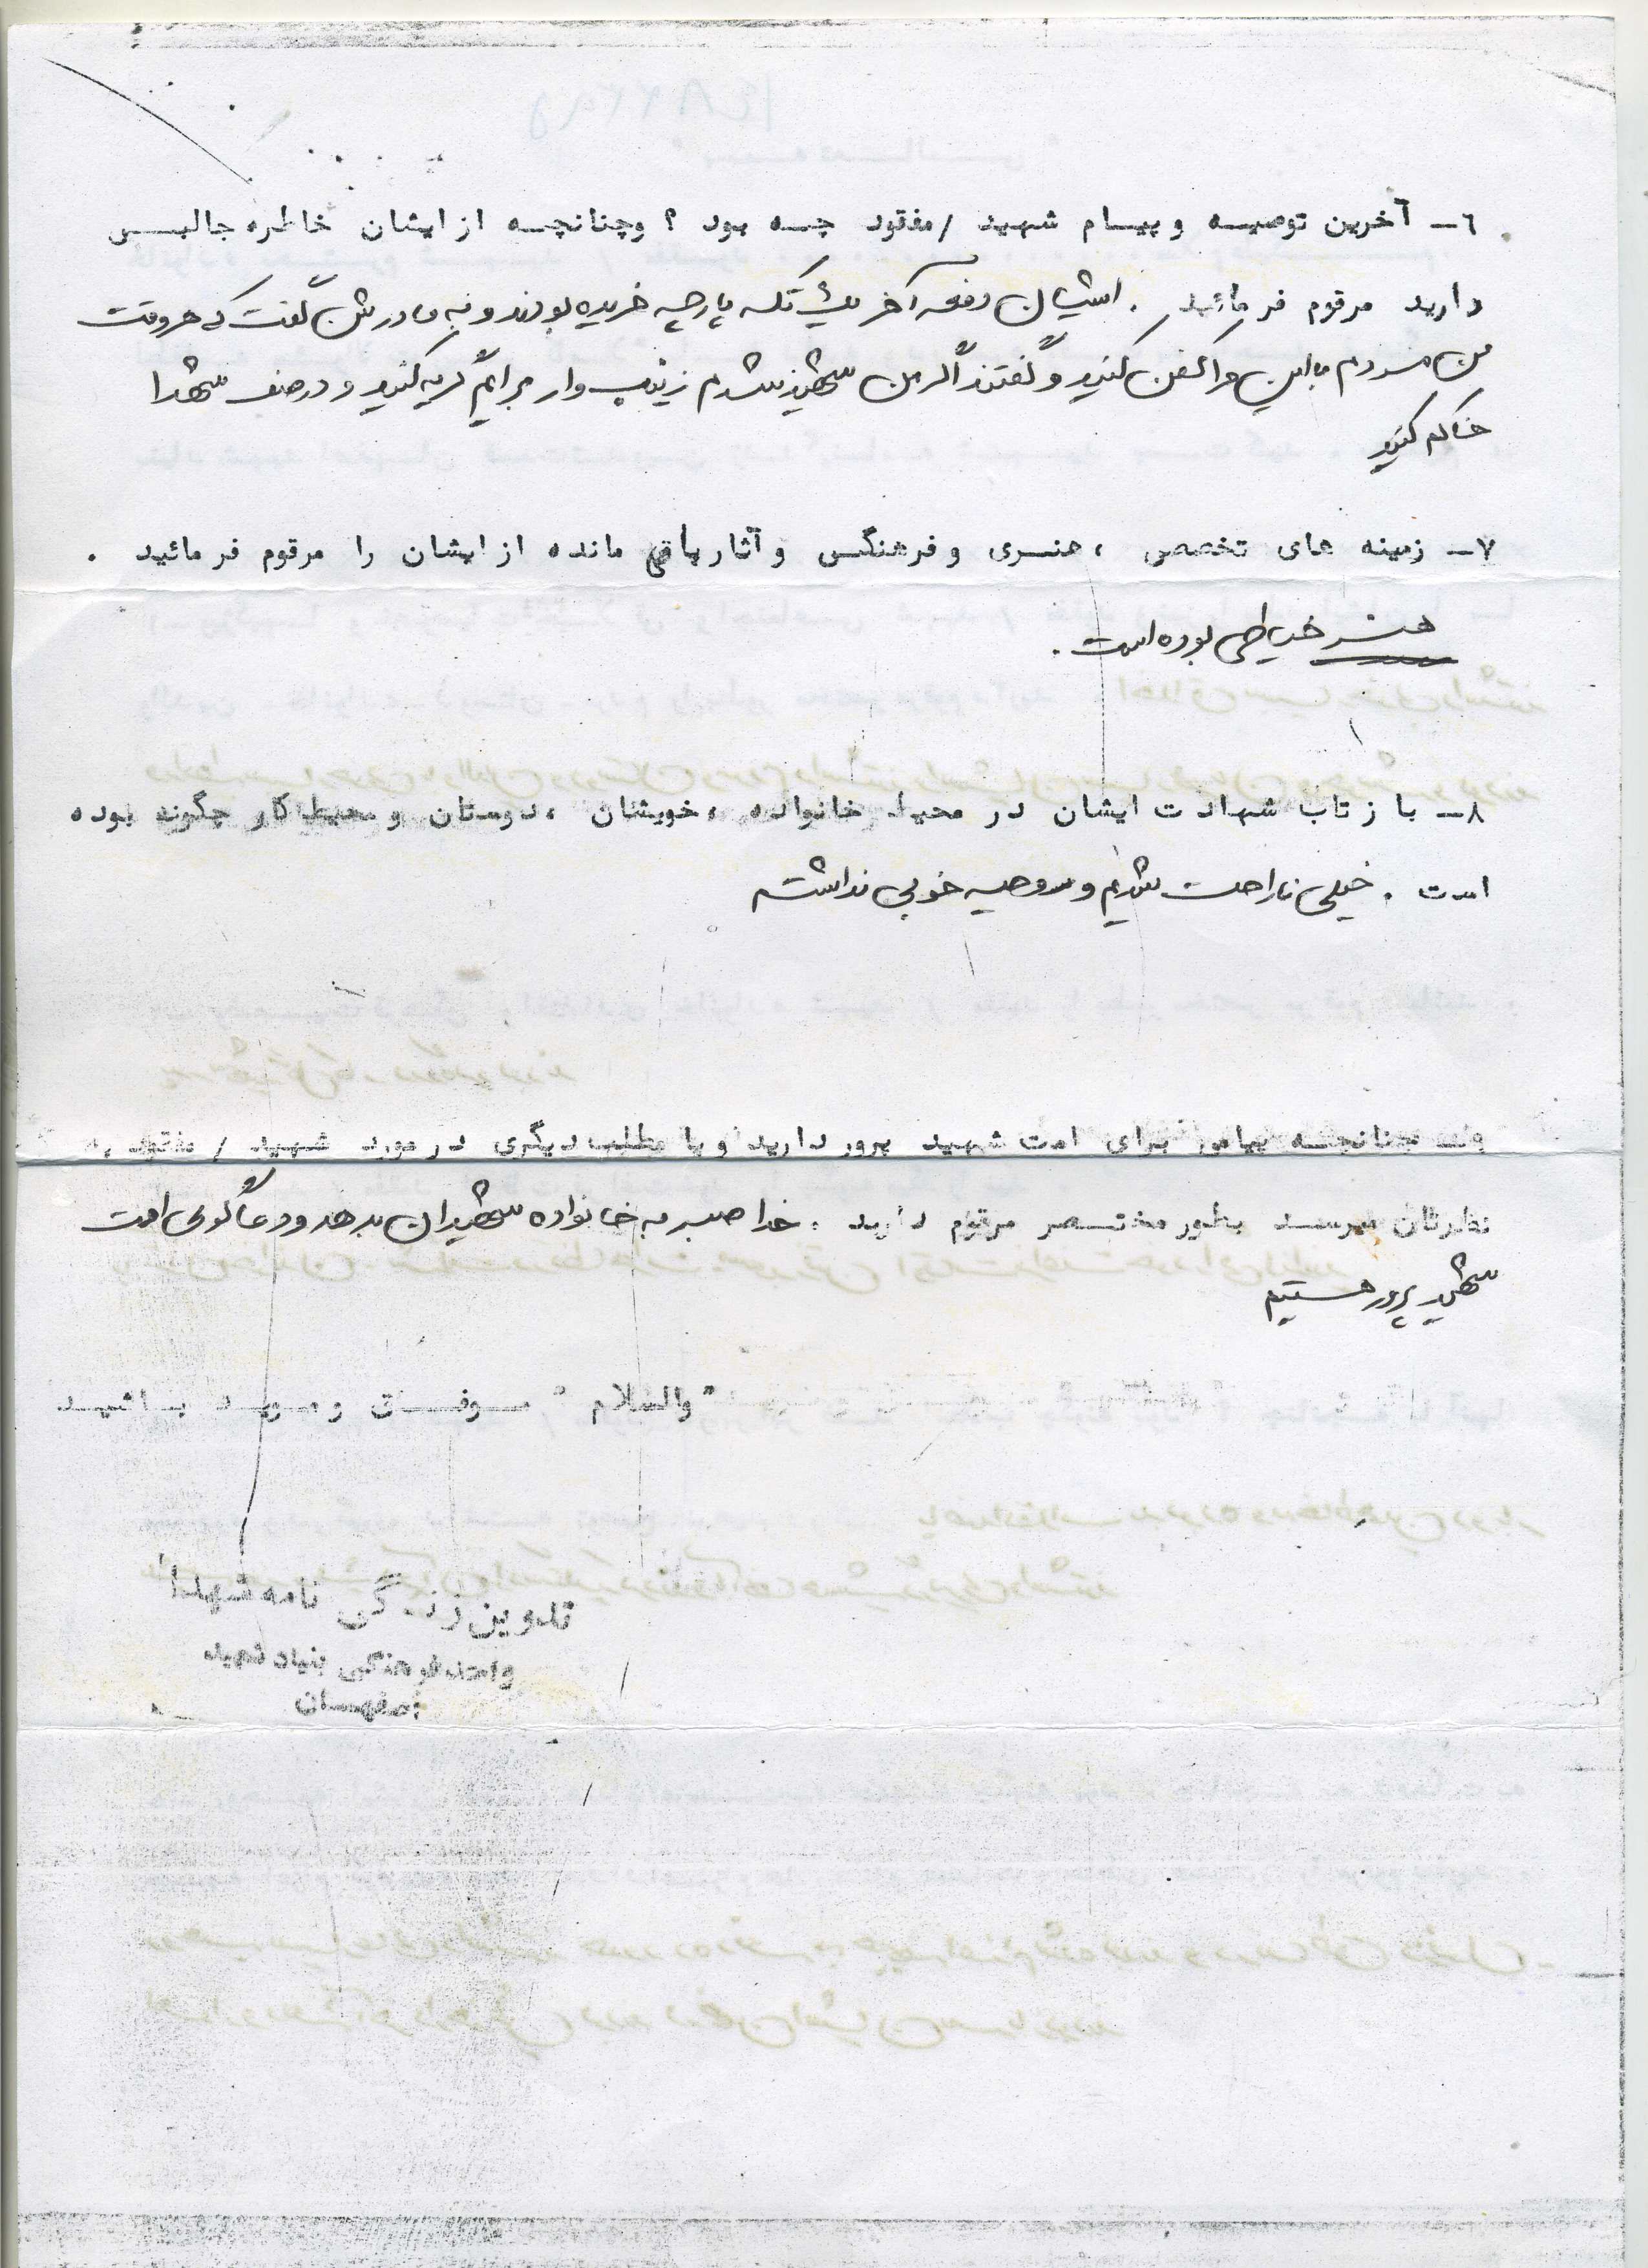 ٦ـ آخرین توصیه و پیام شهید /مفقود چه بود ؟ وچنانچه از ایشان خاطره جالبی
دارید مرقوم فرمائید . ایشان دفعه آخر یک تکه پارچه خریده بودند و به مادرش گفت که هر وقت
من مردم با این مرا کفن کنید و گفتند اگر من شهید شدم زینب وار برایم گریه کنید و در صف شهدا
خاکم کنید
٧ـ زمینه های تخصصی ، هنری و فرهنگی و آثار باقی مانده از ایشان را مرقوم فرمائید .
هنر خیاطی بوده است .
٨ـ باز تاب شهادت ایشان در محیط خانواده ، خویشان ، دوستان و محیط کار چگونه بوده
است . خیلی ناراحت شدیم و روحیه خوبی نداشته
۹ـ چنانچه پیامی برای امت شهید پرور دارید و یا مطلب دیگری در مورد شهید / مفقود به
نظرتان میرسد بطور مختصر مرقوم دارید . خدا صبر به خانواده شهیدان بدهد و دعاگوی امت
شهید پرور هستیم
" والسلام " موفق و موید باشید
تدوین زندگی نامه شهدا
واحد فرهنگی بنیاد شهید
اصفهان